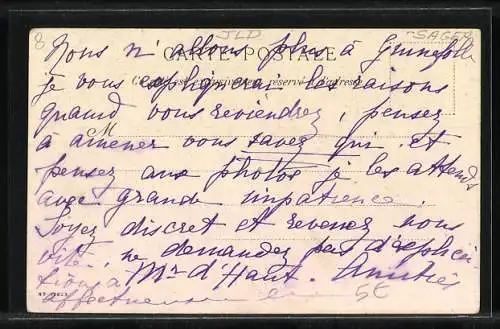 8 JLD SAGER
Nous n'allons plus à
CARTE POSTALE
je vous expliquerai les raisons
Ce côté est exclusivement réservé à l'adresse
quand vous reviendrez, pensez
M
à amener vous savez qui. et
pensez aux photos je les attends
avec grande impatience.
Soyez discret et revenez nous
vite, ne demandez pas d'explica
tions à Mr d'Haut. Amitiés
affectueuses
5€